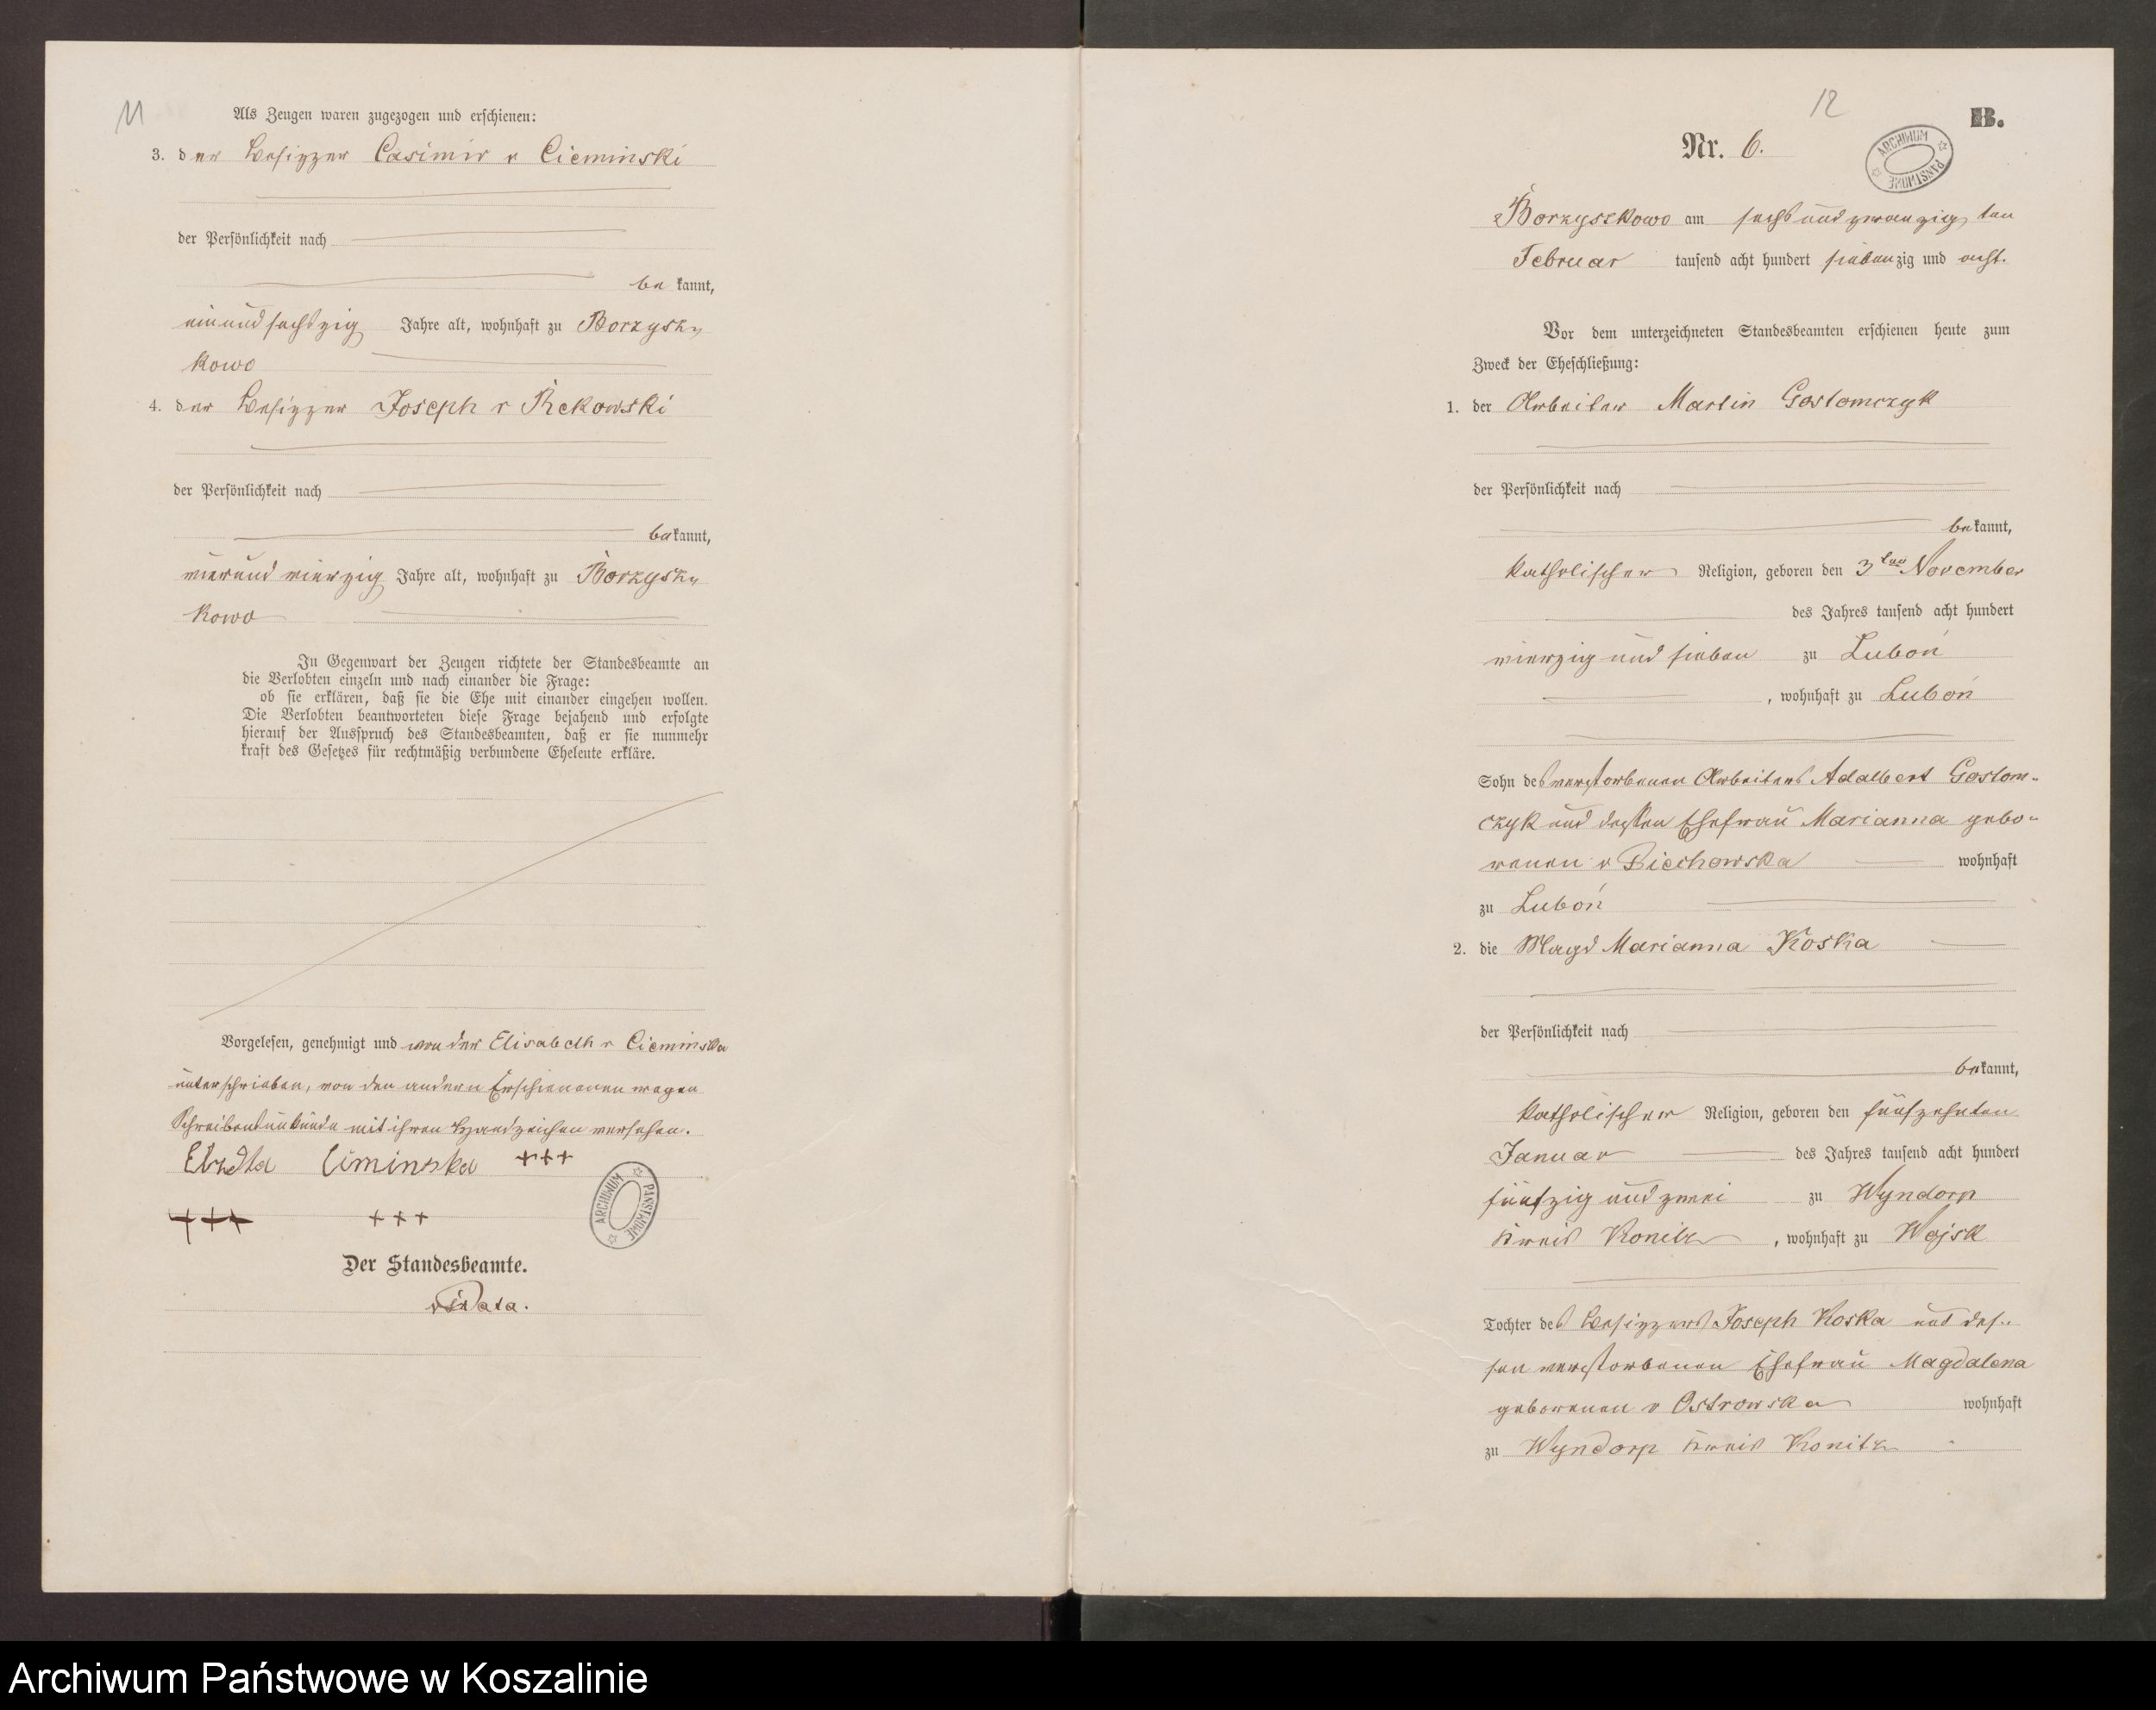 11
Als Zeugen waren zugezogen und erschienen:
3. der Besitzer Casimir v Cieminski
der Persönlichkeit nach
be kannt,
einundsechszig Jahre alt, wohnhaft zu Borzysz-
kowo
4. der Besitzer Joseph v Rekowski
der Persönlichkeit nach
bekannt,
vierundvierzig Jahre alt, wohnhaft zu Borzysz-
kowo
In Gegenwart der Zeugen richtete der Standesbeamte an
die Verlobten einzeln und nach einander die Frage:
ob sie erklären, daß sie die Ehe mit einander eingehen wollen.
Die Verlobten beantworteten diese Frage bejahend und erfolgte
hierauf der Ausspruch des Standesbeamten, daß er sie nunmehr
kraft des Gesetzes für rechtmäßig verbundene Eheleute erkläre.
Vorgelesen, genehmigt und von der Elisabeth v Cieminska
unterschrieben, von den andern Erschienenen wegen
Schreibensunkunde mit ihren Handzeichen versehen.
Ciminska +++
+++ +++
ARCHIWUM PAŃSTWOWE
Der Standesbeamte.
12
B.
Nr. 6.
ARCHIWUM PAŃSTWOWE
Borzyszkowo am sechsundzwanzig ten
Februar tausend acht hundert siebenzig und acht.
Vor dem unterzeichneten Standesbeamten erschienen heute zum
Zweck der Eheschließung:
1. der Arbeiter Martin Gostomczyk
der Persönlichkeit nach
bekannt,
katholischer Religion, geboren den 3ten November
des Jahres tausend acht hundert
vierzig und sieben zu Luboń
, wohnhaft zu Luboń
Sohn des verstorbenen Arbeiters Adalbert Gostom-
czyk und dessen Ehefrau Marianna gebo-
renen v Biechowska wohnhaft
zu Luboń
2. die Magd Marianna Koska
der Persönlichkeit nach
bekannt,
katholischer Religion, geboren den fünfzehnten
Januar des Jahres tausend acht hundert
fünfzig und zwei zu Wyndorp
Kreis Konitz, wohnhaft zu Wojsk
Tochter des Besitzers Joseph Koska und des-
sen verstorbenen Ehefrau Magdalena
geborenen v Ostrowska wohnhaft
zu Wyndorp Kreis Konitz
Archiwum Państwowe w Koszalinie